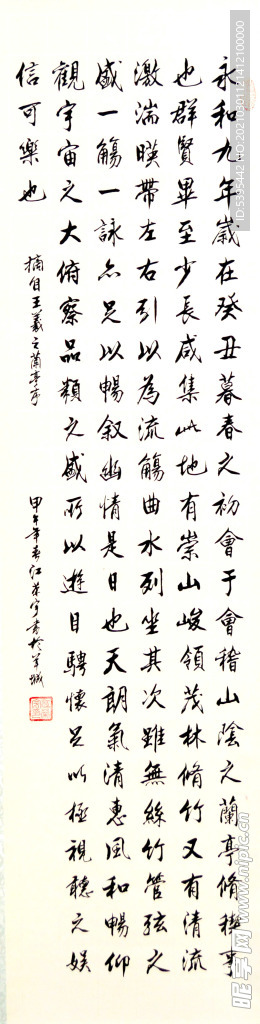 永和九年歲在癸丑暮春之初會于會稽山陰之蘭亭脩稧事
也群賢畢至少長咸集此地有崇山峻領茂林脩竹又有清流
激湍暎帶左右引以為流觴曲水列坐其次雖無絲竹管弦之
盛一觴一詠亦足以暢叙幽情是日也天朗氣清惠風和暢仰
觀宇宙之大俯察品類之盛所以遊目騁懷足以極視聽之娱
信可樂也
摘自王羲之蘭亭序
甲午年春江書於羊城
昵享网 www.nipic.cn
ID:5395442 NO:20210301121412100000